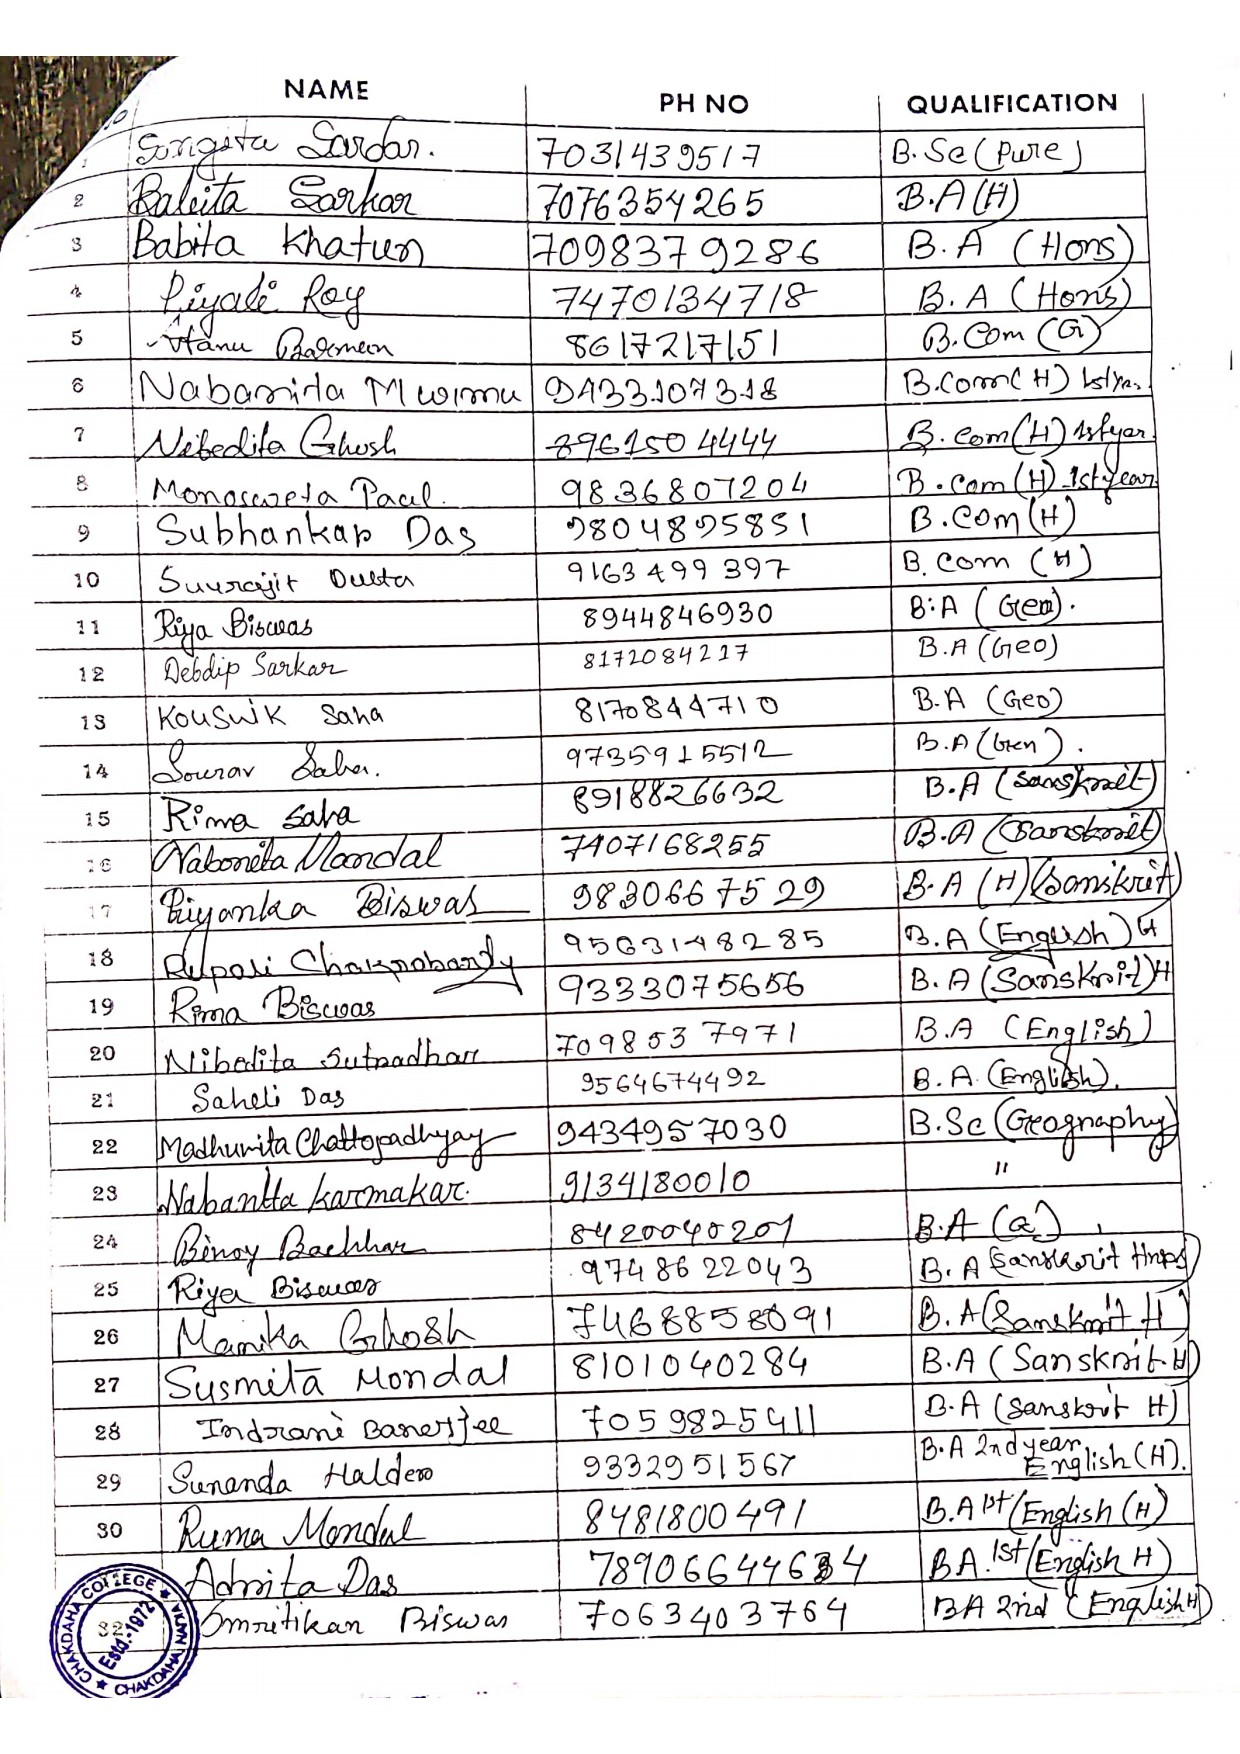 NAME PH NO QUALIFICATION
1 Sangita Sardar. 7031439517 B.Sc (Pure)
2 Sarkar 7076354265 B.A (H)
3 Babita Khatun 7098379286 B.A (Hons)
4 Piyali Roy 7470134718 B.A (Hons)
5 Atanu Barman 8617217151 B.Com (G)
6 Nabamita 9433107318 B.Com (H) 1st yr.
7 Nibedita Ghosh 8961504444 B.com (H) 1st year.
8 Monosweta Paul. 9836807204 B.com (H) 1st year
9 Subhankar Das 9804895851 B.Com (H)
10 Suvrajit Dutta 9163499397 B.Com (H)
11 Riya Biswas 8944846930 B.A (Gen).
12 Debdip Sarkar 8172084217 B.A (Geo)
13 Kouswik Saha 8170844710 B.A (Geo)
14 Sourav Saha. 9735915512 B.A (Gen).
15 Rima Saha 8918826632 B.A (Sanskrit)
16 Nabonita Mandal 7407168255 B.A (Sanskrit)
17 Priyanka Biswas 9830667529 B.A (H) (Sanskrit)
18 Rupasi Chakraborty 9563148285 B.A (English) G
19 Rima Biswas 9333075656 B.A (Sanskrit) H
20 Nibedita Sutradhar 7098537971 B.A (English)
21 Saheli Das 9564674492 B.A. (English).
22 Madhumita Chattopadhyay 9434957030 B.Sc (Geography)
23 Nabanita Karmakar. 9134180010 "
24 Binoy 8420040201 B.A (G)
25 Riya Biswas 9748622043 B.A (Sanskrit Hons)
26 Manika Ghosh 7468858091 B.A (Sanskrit H)
27 Susmita Mondal 8101040284 B.A (Sanskrit H)
28 Indrani Banerjee 7059825411 B.A (Sanskrit H)
29 Sunanda Halder 9332951567 B.A 2nd year English (H).
30 Ruma Mondal 8481800491 B.A 1st (English (H)
Adrita Das 78906644634 BA. 1st (English H)
32 Smritikan Biswas 7063403764 BA 2nd (English H)
CHAKDAHA COLLEGE
Estd.-1972